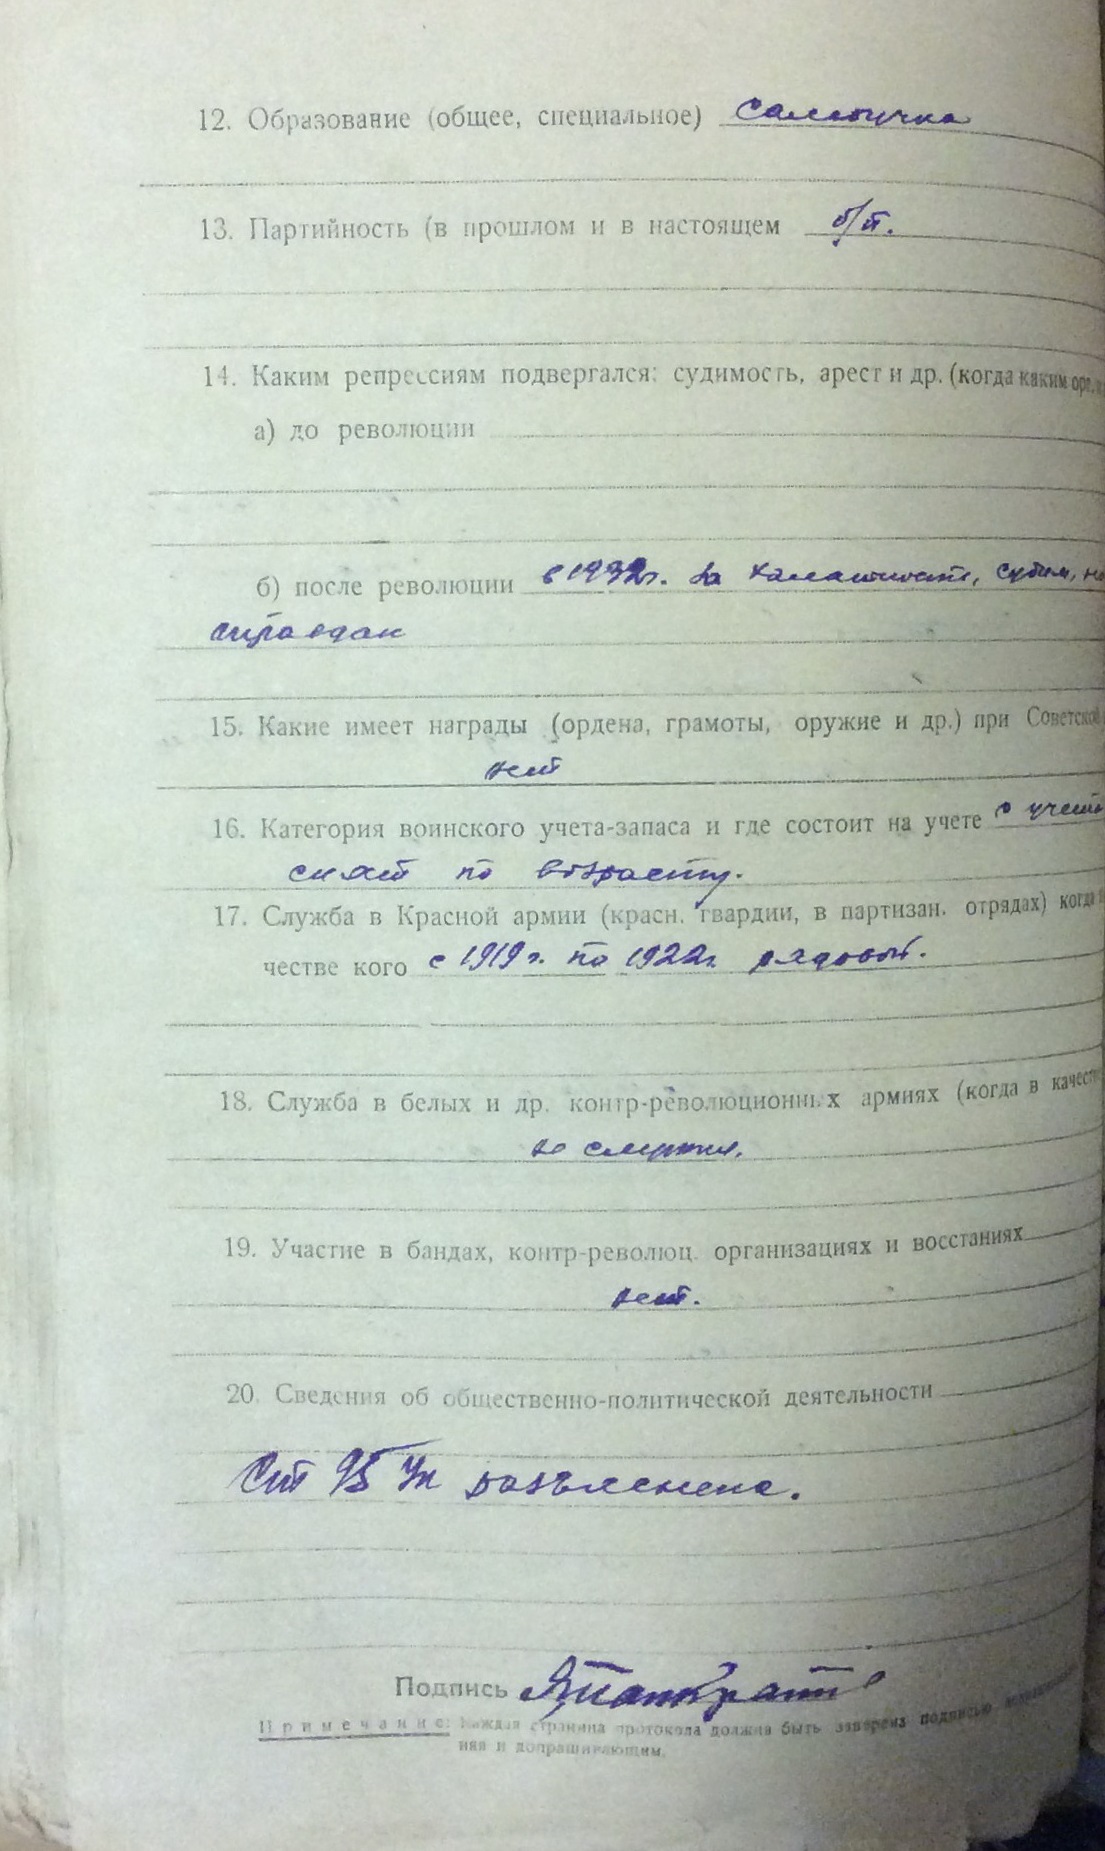 12. Образование (общее, специальное) самоучка
13. Партийность (в прошлом и в настоящем б/п.
14. Каким репрессиям подвергался: судимость, арест и др. (когда каким орг.
а) до революции
б) после революции в 1932г. за халатность, судим, но
оправдан
15. Какие имеет награды (ордена, грамоты, оружие и др.) при Советской
нет
16. Категория воинского учета-запаса и где состоит на учете с учета
снят по возрасту.
17. Служба в Красной армии (красн. гвардии, в партизан. отрядах) когда
честве кого с 1919г. по 1922г. рядовой.
18. Служба в белых и др. контр-революционных армиях (когда в качест
не служил.
19. Участие в бандах, контр-революц. организациях и восстаниях
нет.
20. Сведения об общественно-политической деятельности
Ст 95 УК разъяснена.
Подпись
Примечание: Каждая страница протокола должна быть заверена подписью
ния и допрашивающим.